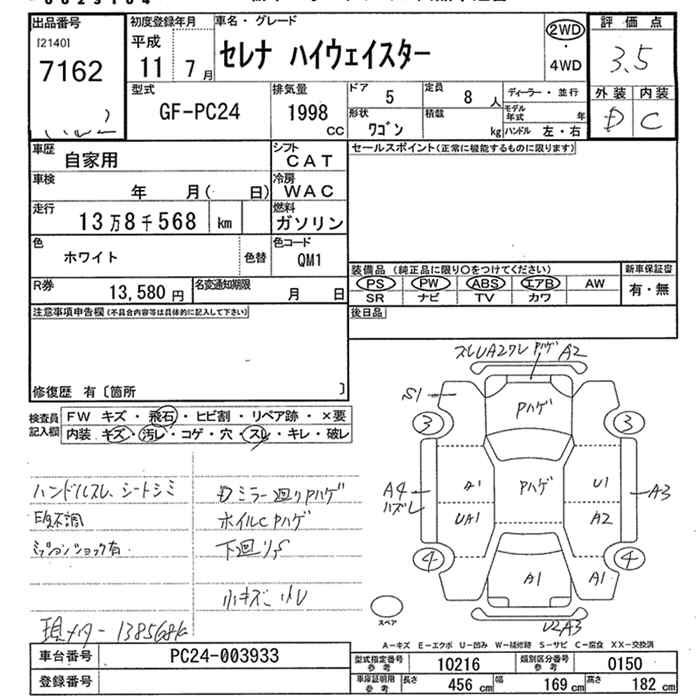 出品番号
[2140]
7162
初度登録年月
平成
11 7月
車名・グレード
セレナ ハイウェイスター
2WD
・
4WD
評価点
3.5
外装 内装
D C
型式
GF-PC24
排気量
1998
CC
ドア
5
定員
8 人
形状
ワゴン
積載
kg
ディーラー・並行
モデル年式 年
ハンドル 左・右
車歴
自家用
シフト
CAT
車検
年 月( 日)
冷房
WAC
走行
13万8千568 km
燃料
ガソリン
色
ホワイト
色替
色コード
QM1
R券
13,580 円
名変通知期限
月 日
セールスポイント(正常に機能するものに限ります)
装備品(純正品に限り○をつけてください)
新車保証書
PS PW ABS エアB AW
有・無
SR ナビ TV カワ
後日品
注意事項申告欄(不具合内容等は具体的に記入して下さい)
修復歴 有〔箇所 〕
検査員
記入欄
FW キズ・飛石・ヒビ割・リペア跡・×要
内装 キズ・汚レ・コゲ・穴・スレ・キレ・破レ
ハンドルスレ、シートシミ
ミッションショック有
Dミラー廻りPハゲ
ホイルCPハゲ
下廻りS
小キズ
現メーター 138568k
スレUA2ワレ PハゲA2
S1
Pハゲ
3
3
A4
ハズレ
A1
UA1
Pハゲ
U1
A2
A3
4
4
A1
A1
U2A3
スペア
A－キズ E－エクボ U－凹み W－補修跡 S－サビ C－腐食 XX－交換済
車台番号
PC24-003933
登録番号
型式指定番号
参考
10216
類別区分番号
参考
0150
車庫証明用
参考
長さ 456 cm 幅 169 cm 高さ 182 cm